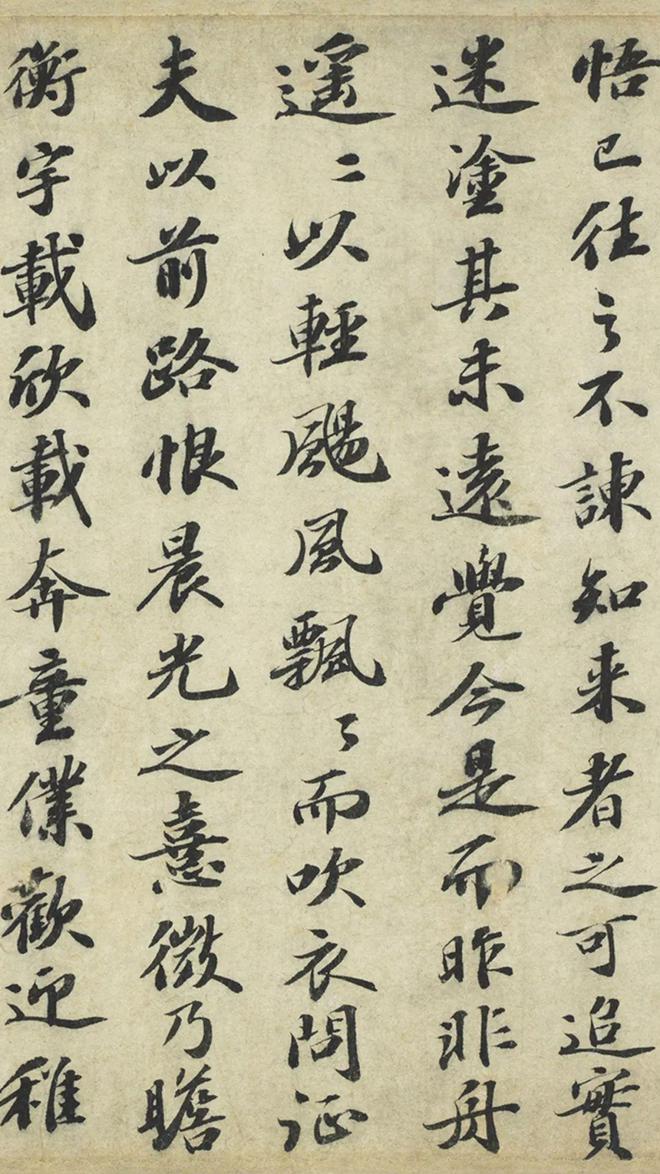 悟已往之不諫知来者之可追實
迷塗其未遠覺今是而昨非舟
遥〻以輕颺風飄〻而吹衣問征
夫以前路恨晨光之憙微乃瞻
衡宇載欣載奔童僕歡迎稚